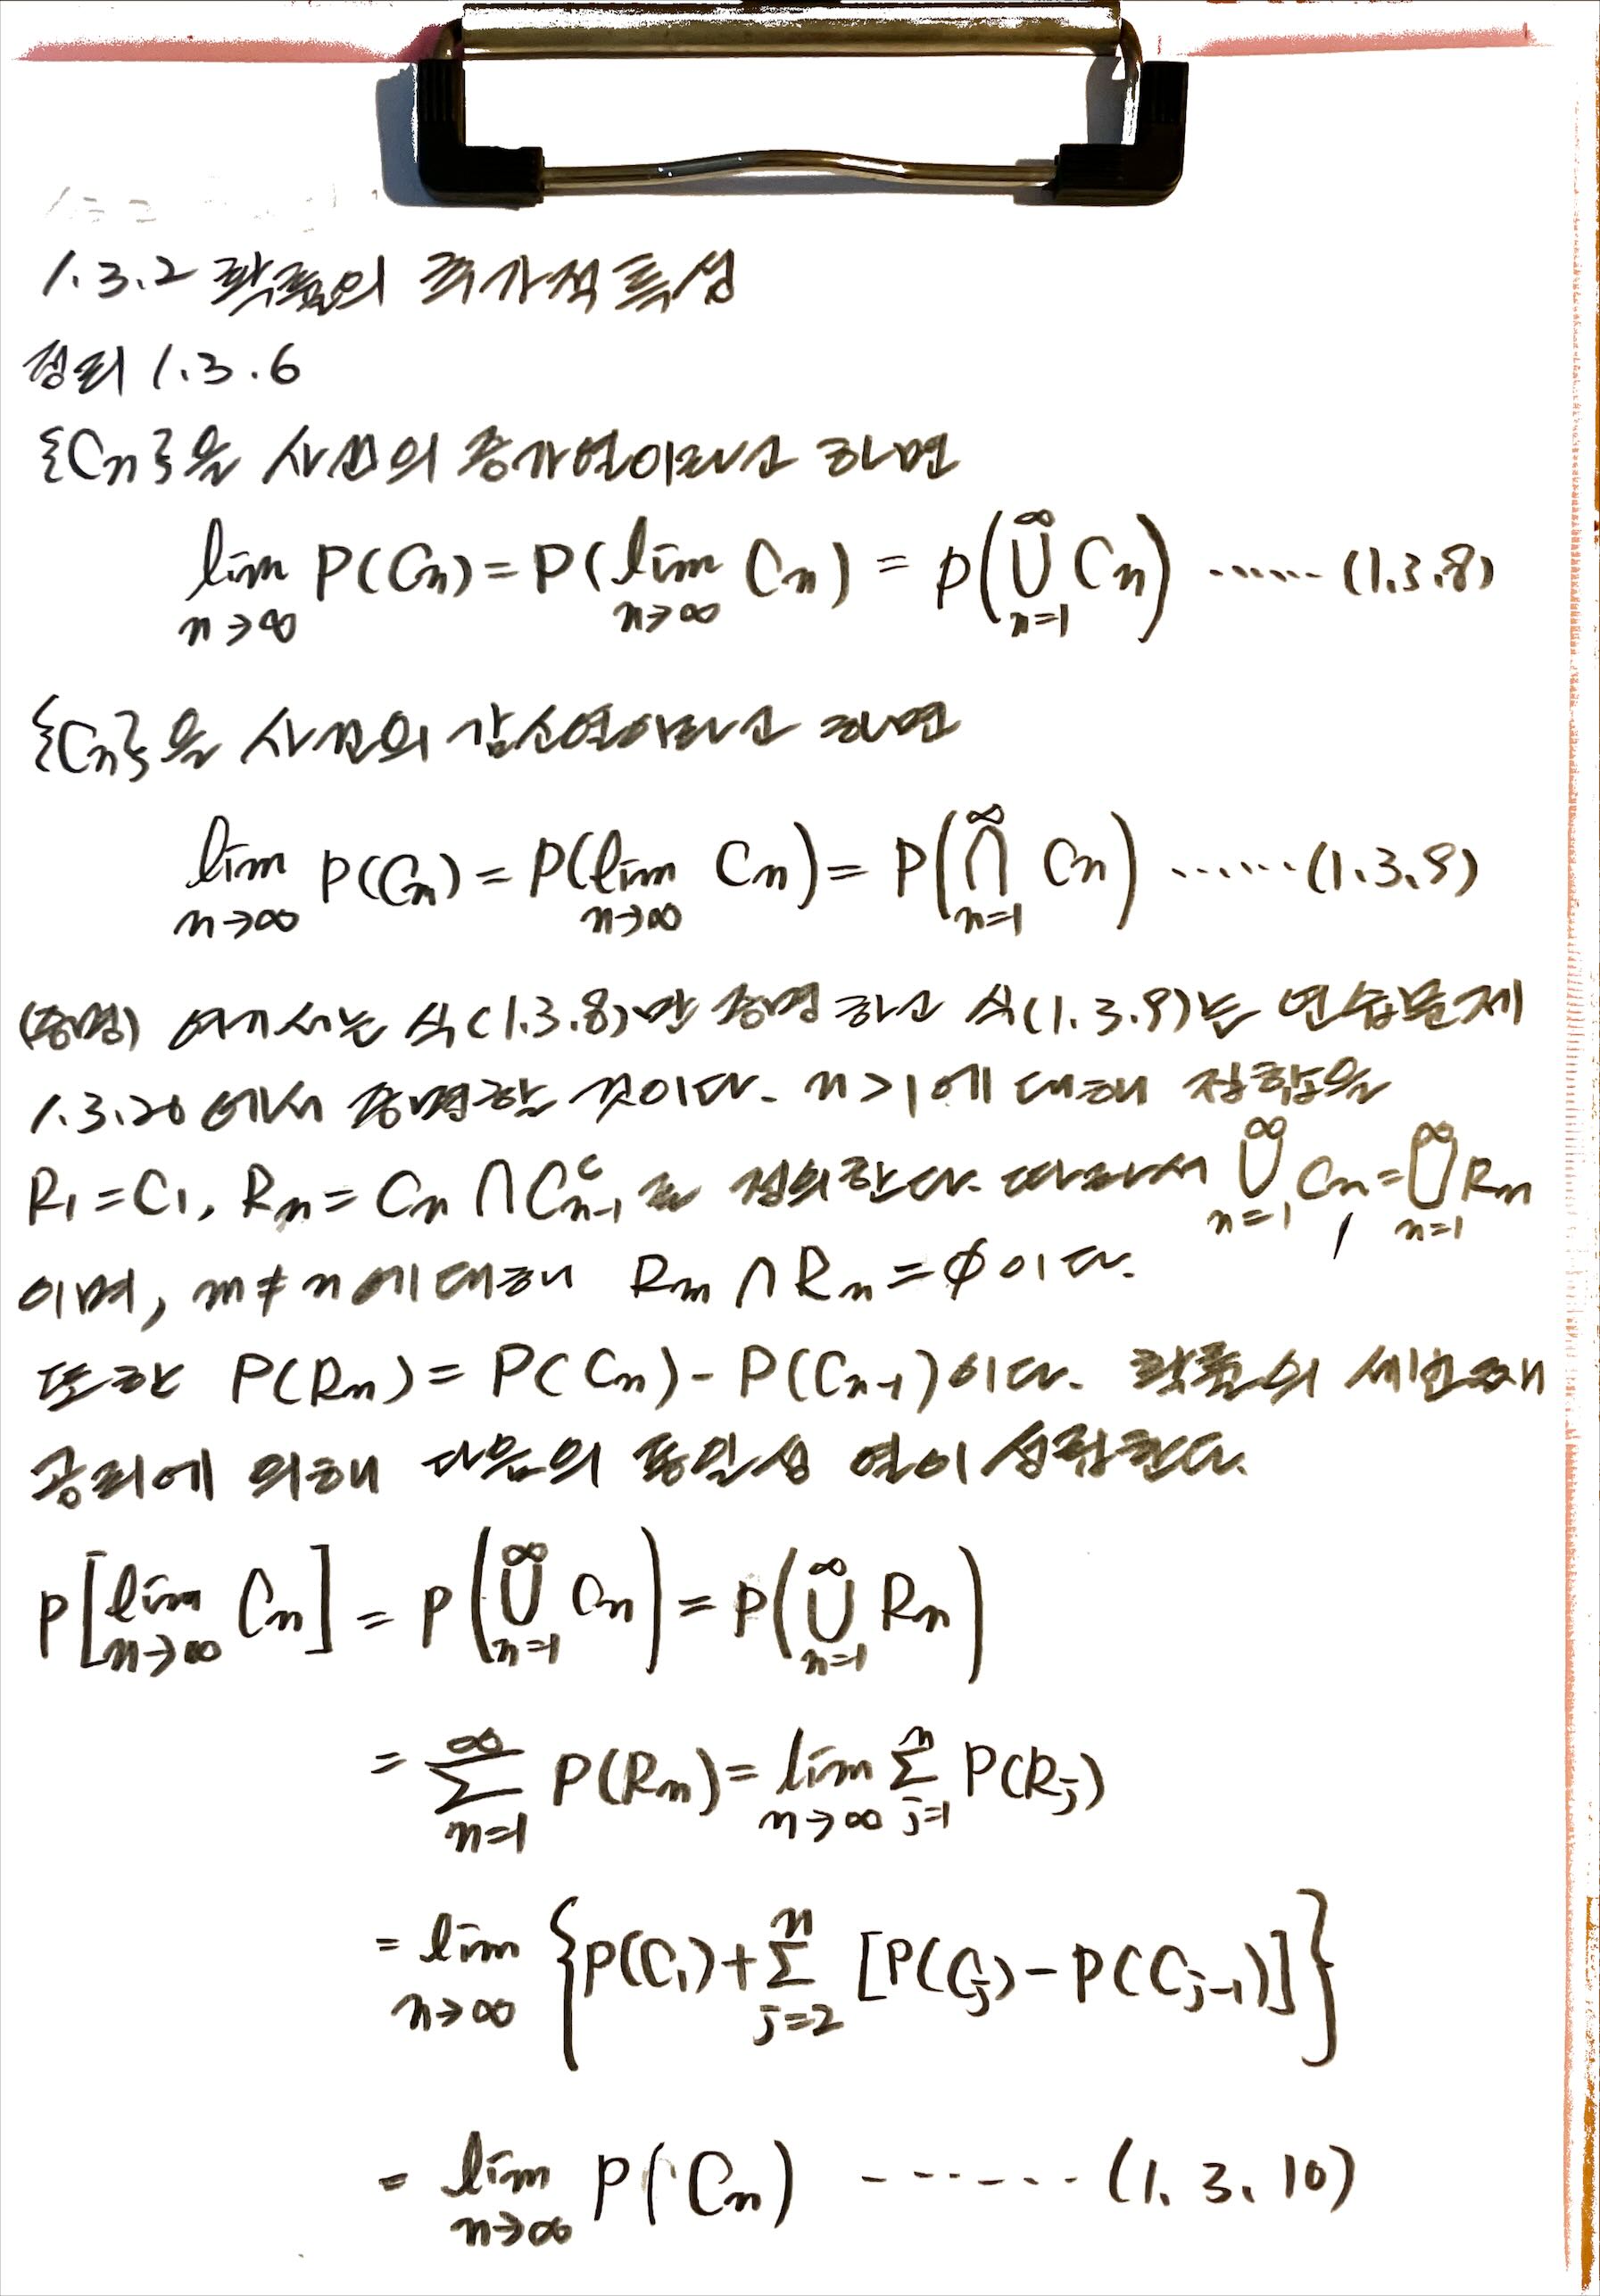 1.3.2 확률의 추가적 특성
정리 1.3.6
{Cn}을 사건의 증가열이라고 하면
lim n→∞ P(Cn) = P(lim n→∞ Cn) = P(∞ ⋃ n=1 Cn) ...... (1.3.8)
{Cn}을 사건의 감소열이라고 하면
lim n→∞ P(Cn) = P(lim n→∞ Cn) = P(∞ ⋂ n=1 Cn) ...... (1.3.9)
(증명) 여기서는 식(1.3.8)만 증명하고 식(1.3.9)는 연습문제
1.3.20에서 증명할 것이다. n>1에 대해 집합을
R1=C1, Rn=Cn∩Cᶜn-1로 정의한다. 따라서 ∞ ⋃ n=1 Cn, = ∞ ⋃ n=1 Rn
이며, m≠n에 대해 Rm∩Rn=∅이다.
또한 P(Rn)=P(Cn)-P(Cn-1)이다. 확률의 세번째
공리에 의해 다음의 동일성 열이 성립한다.
P[lim n→∞ Cn] = P(∞ ⋃ n=1 Cn) = P(∞ ⋃ n=1 Rn)
= ∞ ∑ n=1 P(Rn) = lim n→∞ n ∑ j=1 P(Rj)
= lim n→∞ {P(C1) + n ∑ j=2 [P(Cj)-P(Cj-1)]}
= lim n→∞ P(Cn) ------ (1.3.10)